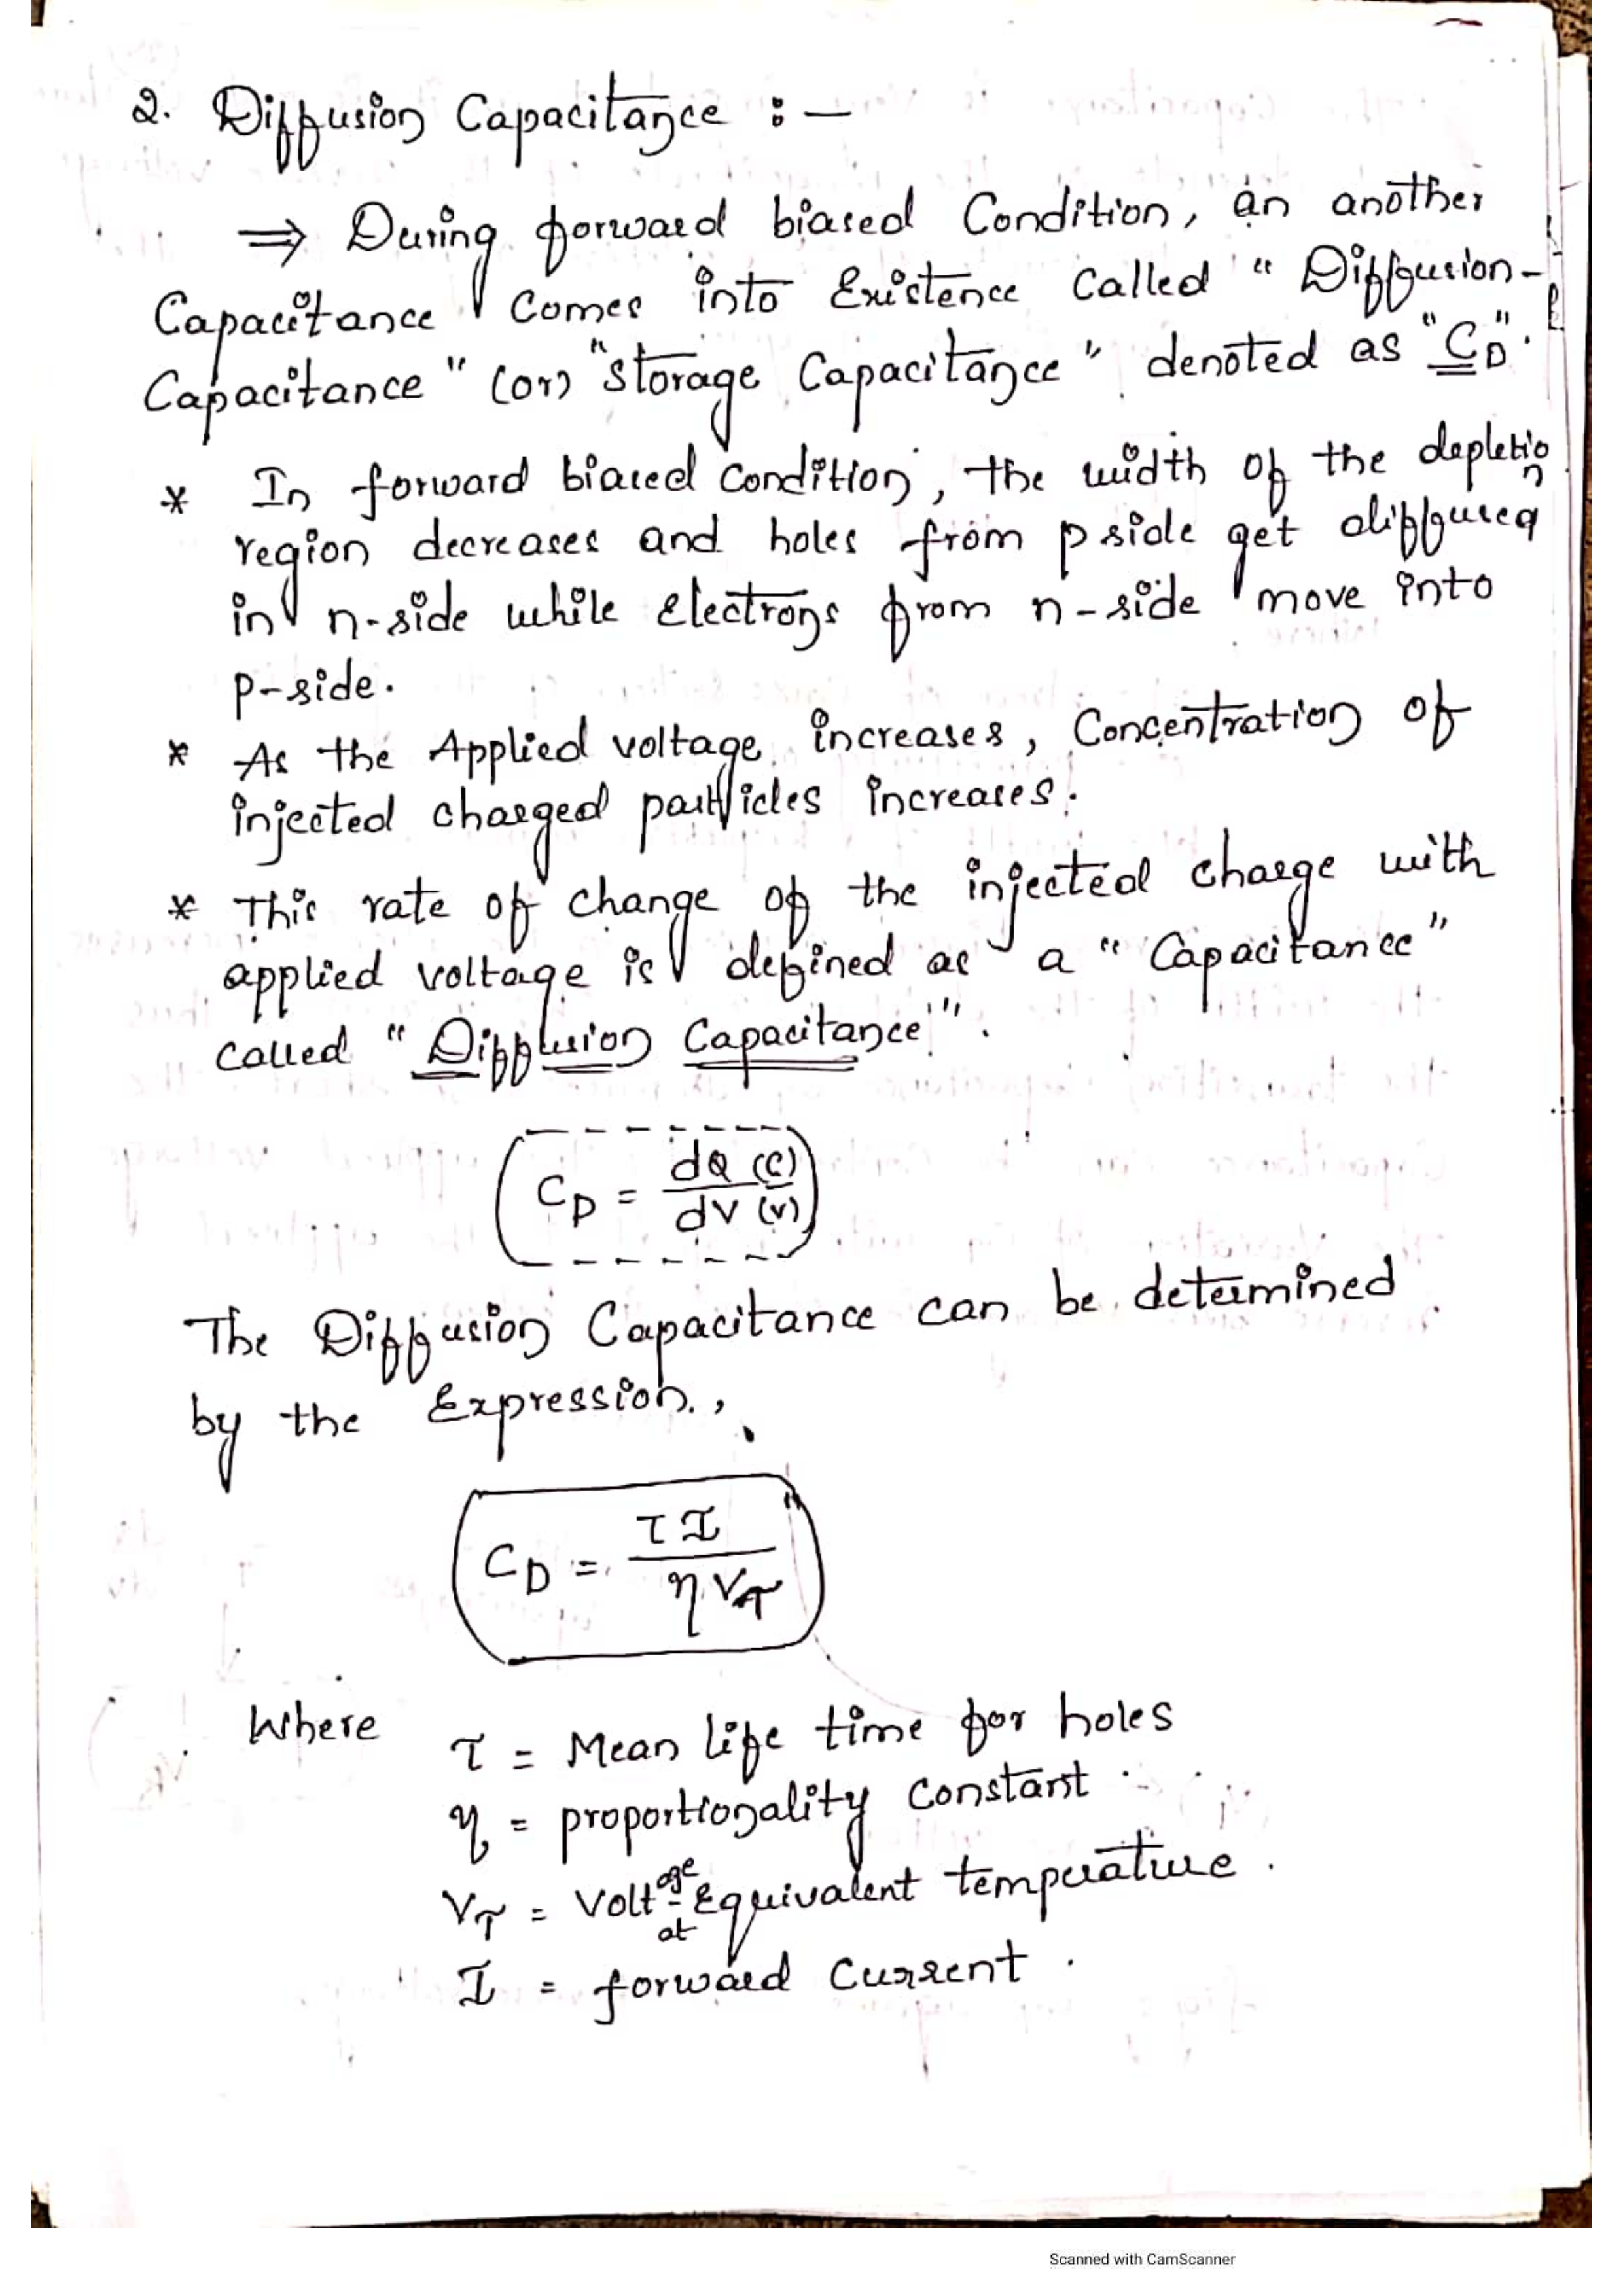 2. Diffusion Capacitance :-
⇒ During forward biased Condition, an another
Capacitance Comes into Existence Called " Diffusion-
Capacitance " (or) "Storage Capacitance" denoted as "CD".
* In forward biased Condition, the width of the depletion
region decreases and holes from p side get diffused
in n-side while Electrons from n-side move into
p-side.
* As the Applied voltage increases, Concentration of
injected charged particles increases.
* This rate of change of the injected charge with
applied voltage is defined as a "Capacitance"
called "Diffusion Capacitance".
CD = dQ (C) / dV (V)
The Diffusion Capacitance can be determined
by the Expression.,
CD = τ I / η VT
Where τ = Mean life time for holes
η = proportionality Constant
VT = Voltage Equivalent at temperature.
I = forward Current.
Scanned with CamScanner